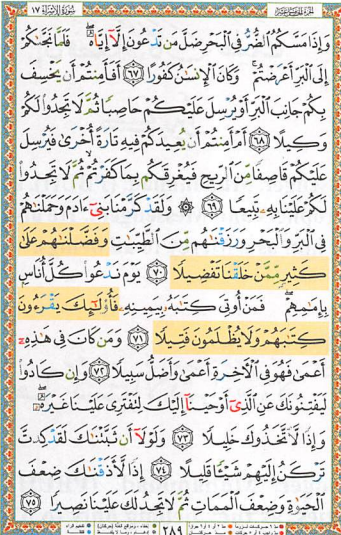 سُورَةُ الإِسْرَاءِ ١٧
الجُزْءُ الخَامِسَ عَشَرَ
وَإِذَا مَسَّكُمُ ٱلضُّرُّ فِي ٱلْبَحْرِ ضَلَّ مَن تَدْعُونَ إِلَّآ إِيَّاهُ ۖ فَلَمَّا نَجَّىٰكُمْ
إِلَى ٱلْبَرِّ أَعْرَضْتُمْ ۚ وَكَانَ ٱلْإِنسَٰنُ كَفُورًا ٦٧ أَفَأَمِنتُمْ أَن يَخْسِفَ
بِكُمْ جَانِبَ ٱلْبَرِّ أَوْ يُرْسِلَ عَلَيْكُمْ حَاصِبًا ثُمَّ لَا تَجِدُوا۟ لَكُمْ
وَكِيلًا ٦٨ أَمْ أَمِنتُمْ أَن يُعِيدَكُمْ فِيهِ تَارَةً أُخْرَىٰ فَيُرْسِلَ
عَلَيْكُمْ قَاصِفًا مِّنَ ٱلرِّيحِ فَيُغْرِقَكُم بِمَا كَفَرْتُمْ ۙ ثُمَّ لَا تَجِدُوا۟
لَكُمْ عَلَيْنَا بِهِۦ تَبِيعًا ٦٩ ۞ وَلَقَدْ كَرَّمْنَا بَنِيٓ ءَادَمَ وَحَمَلْنَٰهُمْ
فِي ٱلْبَرِّ وَٱلْبَحْرِ وَرَزَقْنَٰهُم مِّنَ ٱلطَّيِّبَٰتِ وَفَضَّلْنَٰهُمْ عَلَىٰ
كَثِيرٍ مِّمَّنْ خَلَقْنَا تَفْضِيلًا ٧٠ يَوْمَ نَدْعُوا۟ كُلَّ أُنَاسٍۭ
بِإِمَٰمِهِمْ ۖ فَمَنْ أُوتِيَ كِتَٰبَهُۥ بِيَمِينِهِۦ فَأُو۟لَٰٓئِكَ يَقْرَءُونَ
كِتَٰبَهُمْ وَلَا يُظْلَمُونَ فَتِيلًا ٧١ وَمَن كَانَ فِي هَٰذِهِۦٓ
أَعْمَىٰ فَهُوَ فِي ٱلْءَاخِرَةِ أَعْمَىٰ وَأَضَلُّ سَبِيلًا ٧٢ وَإِن كَادُوا۟
لَيَفْتِنُونَكَ عَنِ ٱلَّذِيٓ أَوْحَيْنَآ إِلَيْكَ لِتَفْتَرِيَ عَلَيْنَا غَيْرَهُۥ ۖ
وَإِذًا لَّٱتَّخَذُوكَ خَلِيلًا ٧٣ وَلَوْلَآ أَن ثَبَّتْنَٰكَ لَقَدْ كِدتَّ
تَرْكَنُ إِلَيْهِمْ شَيْـًٔا قَلِيلًا ٧٤ إِذًا لَّأَذَقْنَٰكَ ضِعْفَ
ٱلْحَيَوٰةِ وَضِعْفَ ٱلْمَمَاتِ ثُمَّ لَا تَجِدُ لَكَ عَلَيْنَا نَصِيرًا ٧٥
٢٨٩